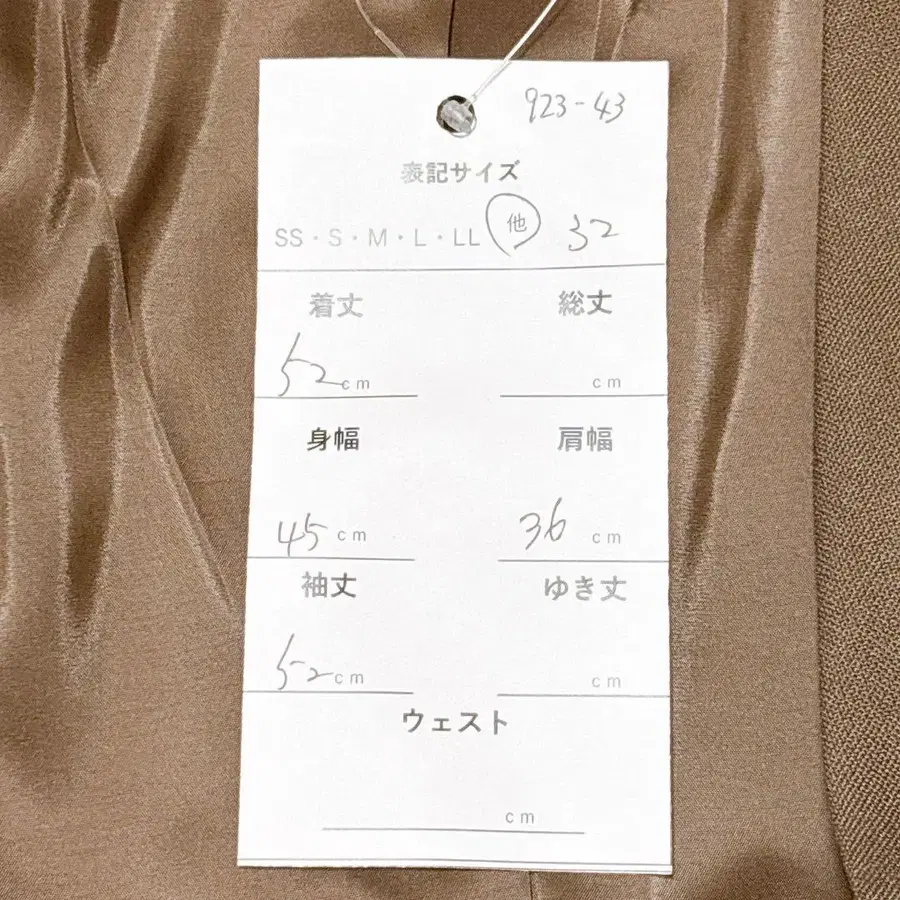 923-43
表記サイズ
SS・S・M・L・LL 他 32
着丈 総丈
52cm cm
身幅 肩幅
45cm 36cm
袖丈 ゆき丈
52cm cm
ウェスト
cm